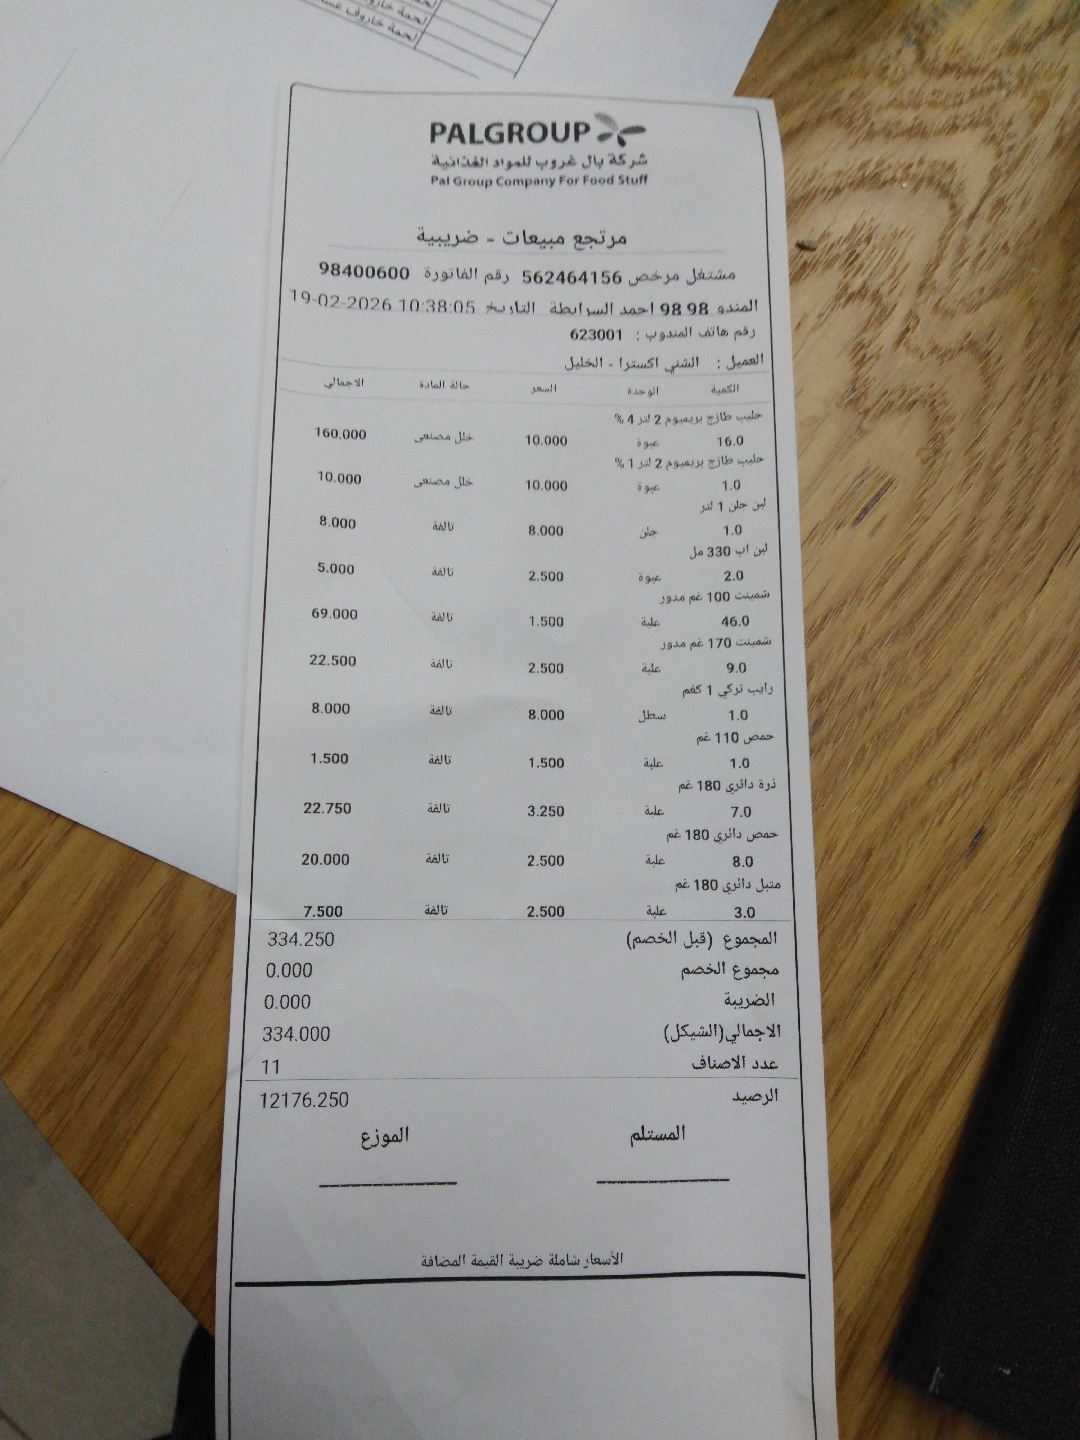 لحمة خاروف
لحمة خاروف عسا
PALGROUP
شركة بال غروب للمواد الغذائية
Pal Group Company For Food Stuff
مرتجع مبيعات - ضريبية
مشتغل مرخص 562464156 رقم الفاتورة 98400600
المندو 98 98 احمد السرابطة التاريخ 19-02-2026 10:38:05
رقم هاتف المندوب : 623001
العميل : الشني اكسترا - الخليل
الكمية الوحدة السعر حالة المادة الاجمالي
حليب طازج بريميوم 2 لتر 4 %
16.0 عبوة 10.000 خلل مصنعي 160.000
حليب طازج بريميوم 2 لتر 1 %
1.0 عبوة 10.000 خلل مصنعي 10.000
لبن جلن 1 لتر
1.0 جلن 8.000 تالفة 8.000
لبن اب 330 مل
2.0 عبوة 2.500 تالفة 5.000
شمينت 100 غم مدور
46.0 علبة 1.500 تالفة 69.000
شمينت 170 غم مدور
9.0 علبة 2.500 تالفة 22.500
رايب تركي 1 كغم
1.0 سطل 8.000 تالفة 8.000
حمص 110 غم
1.0 علبة 1.500 تالفة 1.500
ذرة دائري 180 غم
7.0 علبة 3.250 تالفة 22.750
حمص دائري 180 غم
8.0 علبة 2.500 تالفة 20.000
متبل دائري 180 غم
3.0 علبة 2.500 تالفة 7.500
المجموع (قبل الخصم) 334.250
مجموع الخصم 0.000
الضريبة 0.000
الاجمالي(الشيكل) 334.000
عدد الاصناف 11
الرصيد 12176.250
المستلم الموزع
الأسعار شاملة ضريبة القيمة المضافة